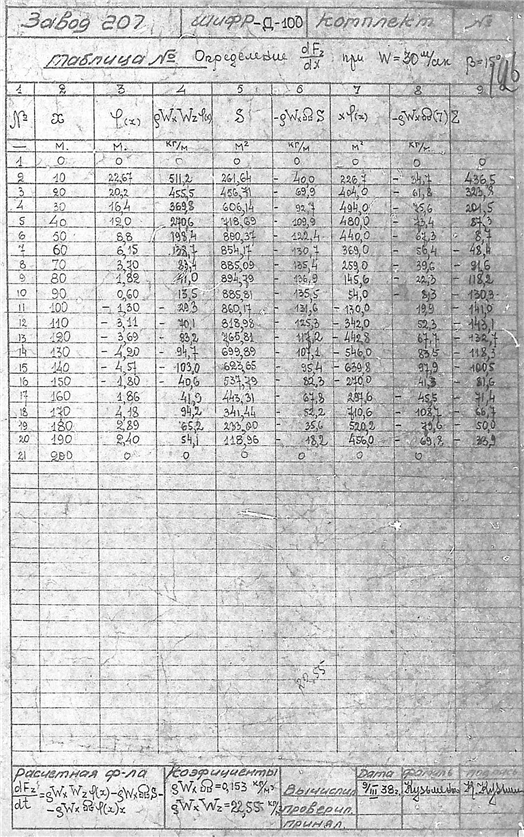 Завод 207 Шифр-Д-100 Комплект №
Таблица № Определение dFz/dx при W=30 м/сек β=15°
1 2 3 4 5 6 7 8 9
№ x φ(x) ϱWxWzφ(x) S -ϱWxω̄S xφ(x) Σ
— м. м. кг/м м² кг/м м² кг/м.
1 0 0 0 0 0 0 0 0
2 10 22,67 511,2 261,64 - 40,0 226,7 - 34,7 436,5
3 20 20,2 455,5 456,71 - 69,9 404,0 - 61,8 323,8
4 30 16,4 369,8 606,14 - 92,7 494,0 - 75,6 201,5
5 40 12,0 270,6 718,69 - 109,9 480,0 - 73,4 87,3
6 50 8,8 198,4 800,37 - 122,4 440,0 - 67,3 8,7
7 60 6,15 138,7 854,17 - 130,7 369,0 - 56,4 - 48,4
8 70 3,70 83,4 885,09 - 135,4 259,0 - 39,6 - 91,6
9 80 1,82 41,0 894,79 - 136,9 145,6 - 22,3 - 118,2
10 90 0,60 13,5 885,81 - 135,5 54,0 - 8,3 - 130,3
11 100 - 1,30 - 29,3 860,17 - 131,6 - 130,0 19,9 - 141,0
12 110 - 3,11 - 70,1 818,98 - 125,3 - 342,0 52,3 - 143,1
13 120 - 3,69 - 83,2 765,81 - 117,2 - 442,8 67,7 - 132,7
14 130 - 4,20 - 94,7 699,89 - 107,1 - 546,0 83,5 - 118,3
15 140 - 4,57 - 103,0 623,65 - 95,4 - 639,8 97,9 - 100,5
16 150 - 1,80 - 40,6 537,79 - 82,3 - 270,0 41,3 - 81,6
17 160 1,86 41,9 443,31 - 67,8 297,6 - 45,5 - 71,4
18 170 4,18 94,2 341,44 - 52,2 710,6 - 108,7 - 66,7
19 180 2,89 65,2 233,00 - 35,6 520,2 - 79,6 - 50,0
20 190 2,40 54,1 118,96 - 18,2 456,0 - 69,8 - 33,9
21 200 0 0 0 0 0 0 0
22,55
Расчетная ф-ла Коэфициенты Дата Фамилия Подпись
dFz/dt=ϱWxWzφ(x)-ϱWxω̄S-
-ϱWxω̄φ(x)x
ϱWxω̄=0,153
ϱWxWz=22,55
Вычислил 9/III 38г.
Проверил.
Принял.